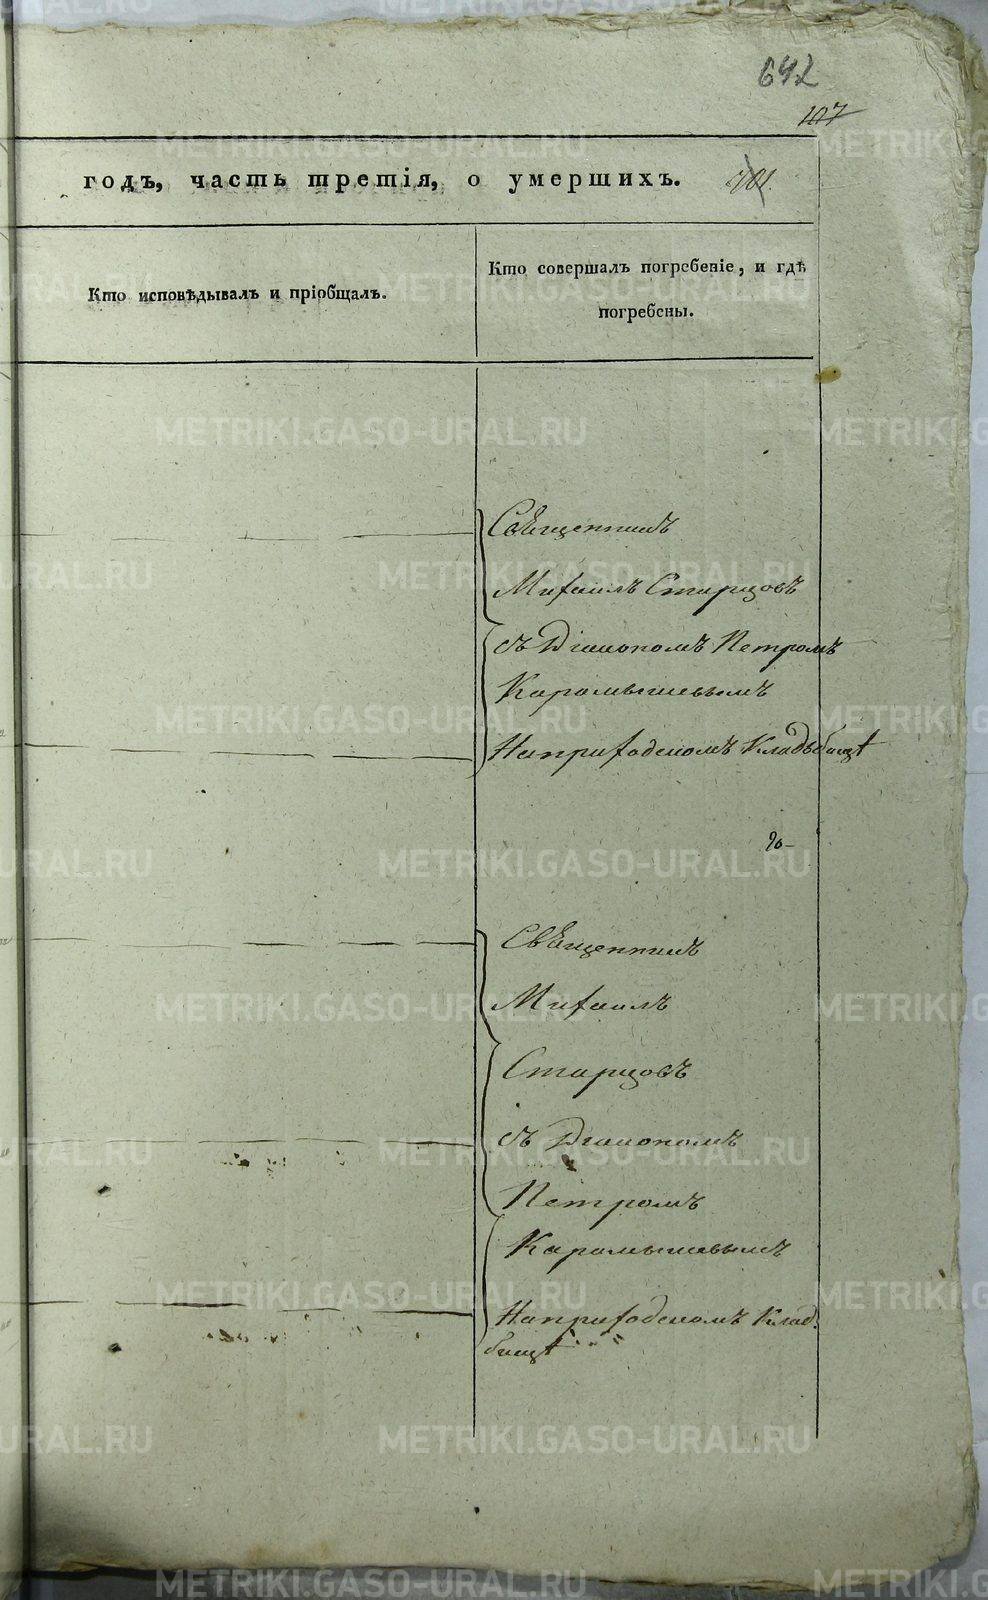 642
107
годъ, часть третія, о умершихъ. 701.
Кто исповѣдывалъ и пріобщалъ.
Кто совершалъ погребеніе, и гдѣ
погребены.
Священникъ
Михаилъ Старцовъ
съ Діакономъ Петромъ
Карамышевымъ
На приходскомъ Кладьбищѣ
Священникъ
Михаилъ
Старцовъ
съ Діакономъ
Петромъ
Карамышевымъ
На приходскомъ Клад
бищѣ
METRIKI.GASO-URAL.RU